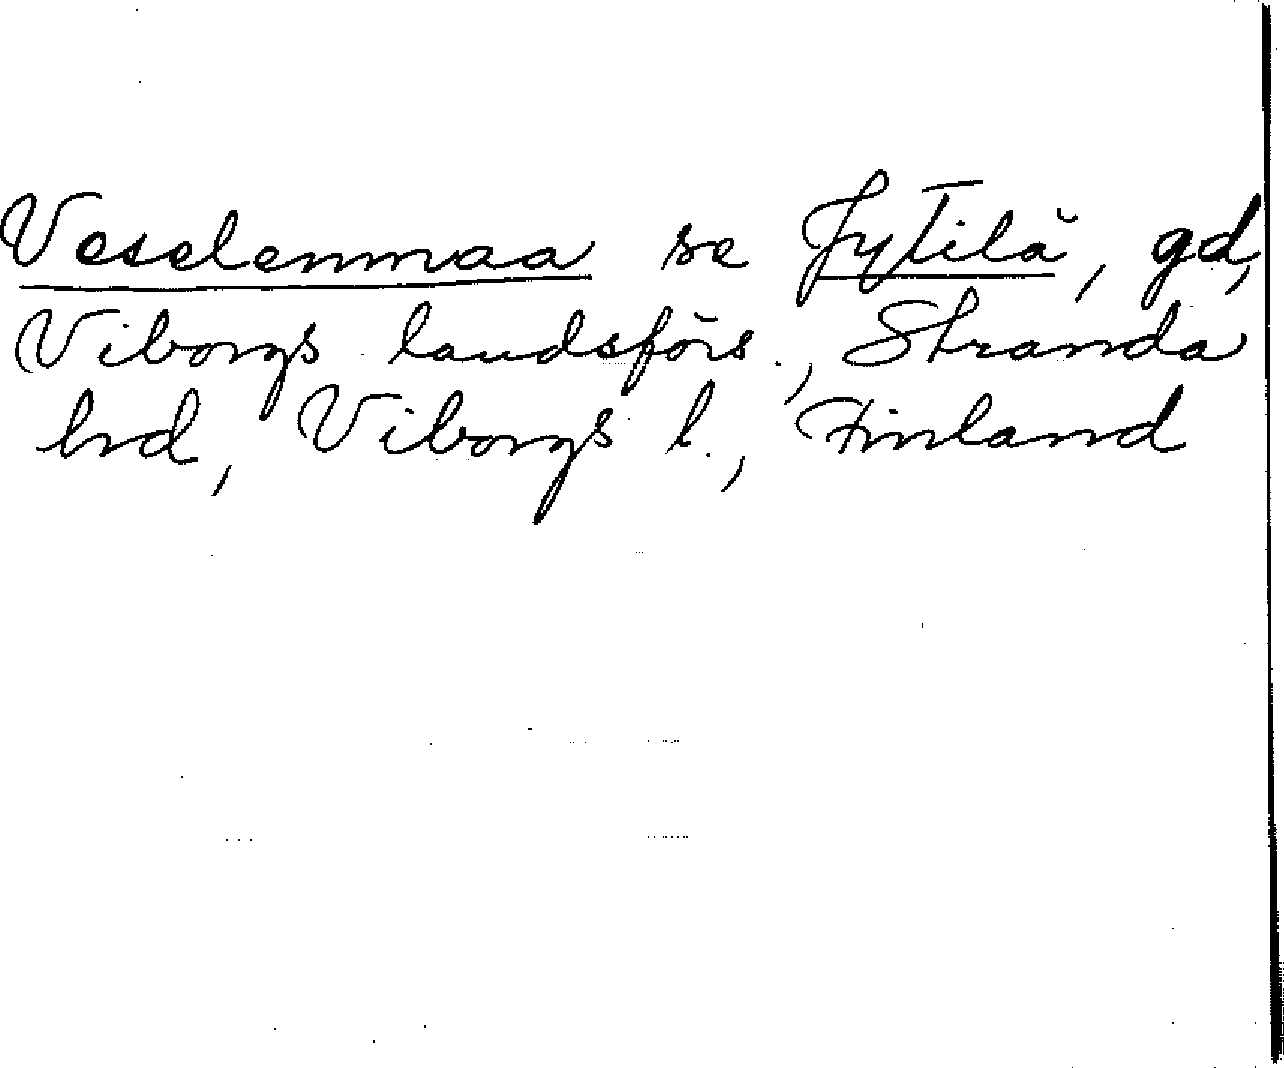 Veselenmaa se Jytilä, gd,
Viborgs landsförs., Stranda
hd, Viborgs l., Finland